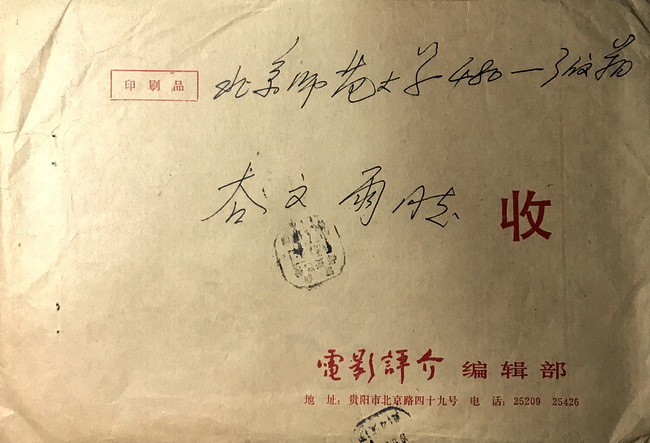 印刷品
北京师范大学480一3
文雨同志
收
電影評介 编辑部
地 址: 贵阳市北京路四十九号 电 话: 25209 25426